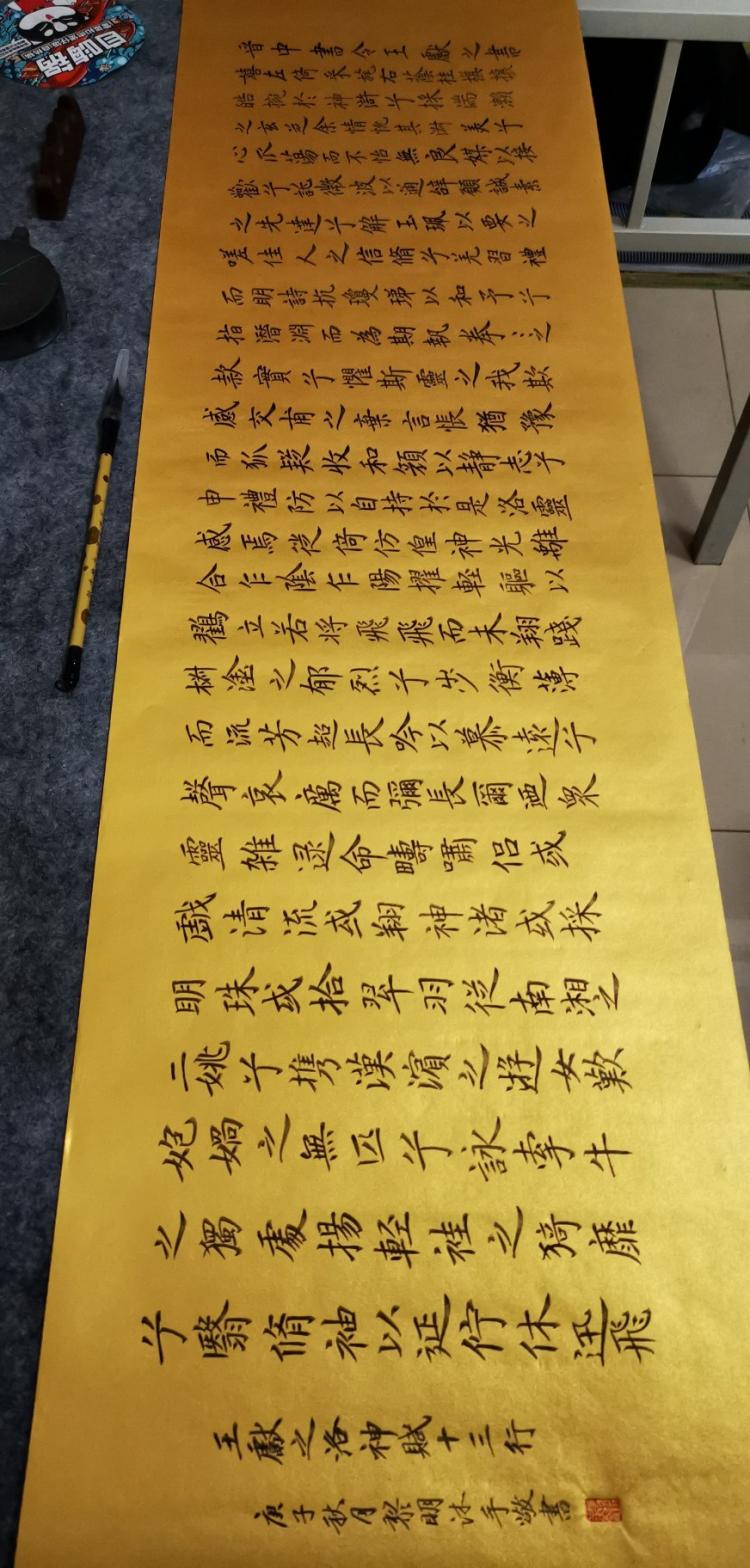 自嗨锅
晋中書令王獻之書
嬉左倚采旄右蔭桂旗攘
皓捥於神滸兮採湍瀨
之玄芝余情恱其淑美兮
心爪蕩而不怡無良媒以接
歡兮託微波以通辝願誠素
之先達兮解玉珮以要之
嗟佳人之信脩兮羌習禮
而明詩抗瓊珶以和予兮
指潛淵而為期執拳〻之
款實兮懼斯靈之我欺
感交甫之棄言悵猶豫
而狐疑收和顏以静志兮
申禮防以自持於是洛靈
感焉徙倚仿偟神光離
合乍陰乍陽擢輕軀以
鸛立若將飛飛而未翔踐
樹塗之郁烈兮步衡薄
而流芳超長吟以慕遠兮
聲哀厲而彌長爾迺衆
靈雜遝命疇嘯侣或
戲清流或翔神渚或採
明珠或拾翠羽従南湘之
二姚兮携漢濱之遊女歎
妑媧之無匹兮詠牽牛
之獨處揚輕袿之猗靡
兮翳脩袖以延佇休迅飛
王獻之洛神賦十三行
庚子秋月黎明沐手敬書